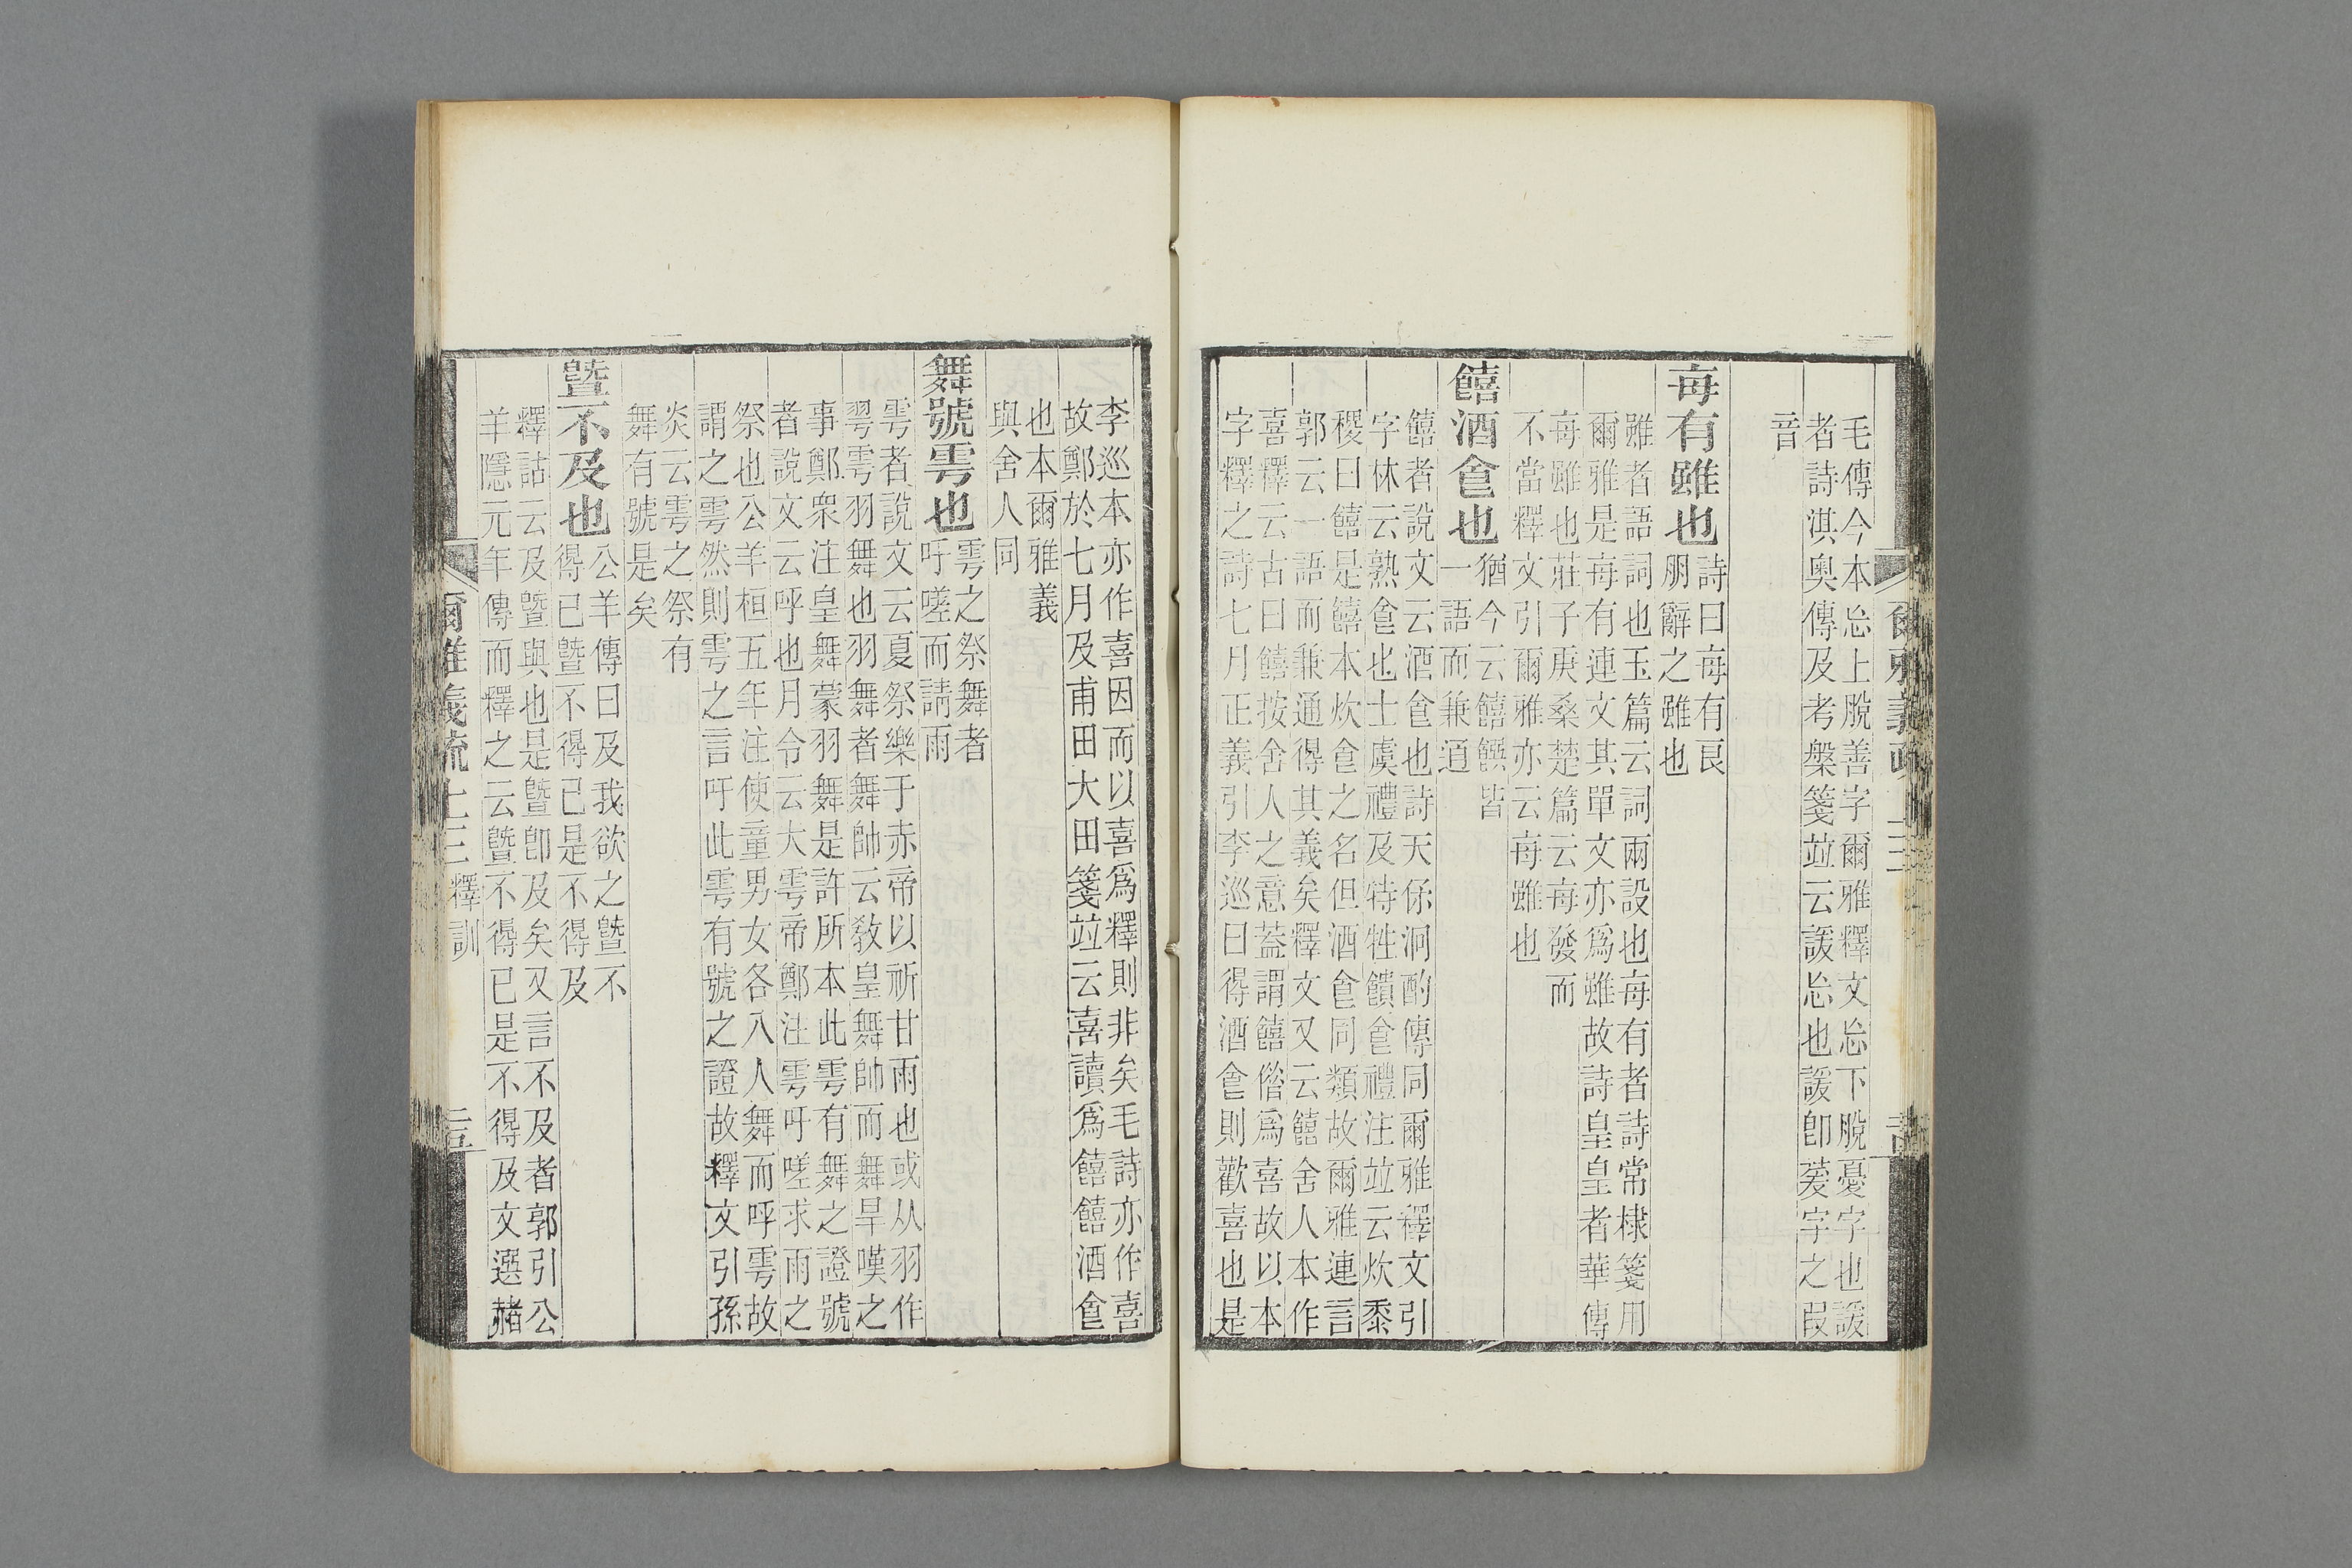 毛傳今本㤀上脫善字爾雅釋文㤀下脫憂字也諼
者詩淇奥傳及考槃箋竝云諼㤀也諼卽萲字之叚
音
每有雖也
詩曰每有良
朋辭之雖也
雖者語詞也玉篇云詞兩設也每有者詩常棣箋用
爾雅是每有連文其單文亦爲雖故詩皇皇者華傳
每雖也莊子庚桑楚篇云每發而
不當釋文引爾雅亦云每雖也
饎酒食也
猶今云饎饌皆
一語而兼通
饎者說文云酒食也詩天保泂酌傳同爾雅釋文引
字林云熟食也士虞禮及特牲饋食禮注竝云炊黍
稷曰饎是饎本炊食之名但酒食同類故爾雅連言
郭云一語而兼通得其義矣釋文又云饎舍人本作
喜釋云古曰饎按舍人之意蓋謂饎偕爲喜故以本
字釋之詩七月正義引李巡曰得酒食則歡喜也是
李巡本亦作喜因而以喜爲釋則非矣毛詩亦作喜
故鄭於七月及甫田大田箋竝云喜讀爲饎饎酒食
也本爾雅義
與舍人同
舞號雩也
雩之祭舞者
吁嗟而請雨
雩者說文云夏祭樂于赤帝以祈甘雨也或从羽作
䨥雩羽舞也羽舞者舞帥云敎皇舞帥而舞旱暵之
事鄭衆注皇舞蒙羽舞是許所本此雩有舞之證號
者說文云呼也月令云大雩帝鄭注雩吁嗟求雨之
祭也公羊桓五年注使童男女各八人舞而呼雩故
謂之雩然則雩之言吁此雩有號之證故釋文引孫
炎云雩之祭有
舞有號是矣
曁不及也
公羊傳曰及我欲之曁不
得已曁不得已是不得及
釋詁云及曁與也是曁卽及矣又言不及者郭引公
羊隱元年傳而釋之云曁不得已是不得及文選赭
爾雅義疏上三
釋訓